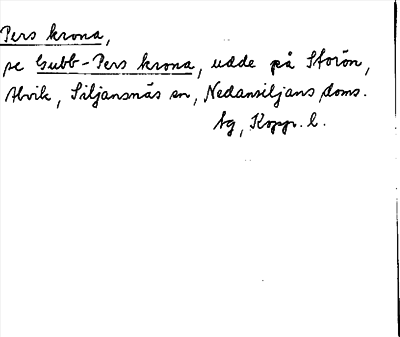 Pers krona,
se Gubb-Pers krona, udde på Storön,
Alvik, Siljansnäs sn, Nedansiljans doms.
tg, Kopp. l.